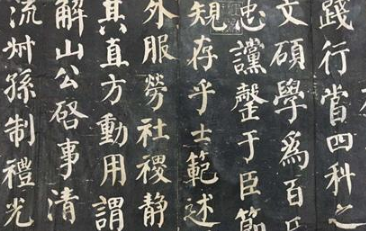 踐行當四科之
文碩學爲百氏
忠讜罄于臣節
規存乎士範述
外服勞社稷靜
其直方動用謂
解山公啓事清
流叔孫制禮光